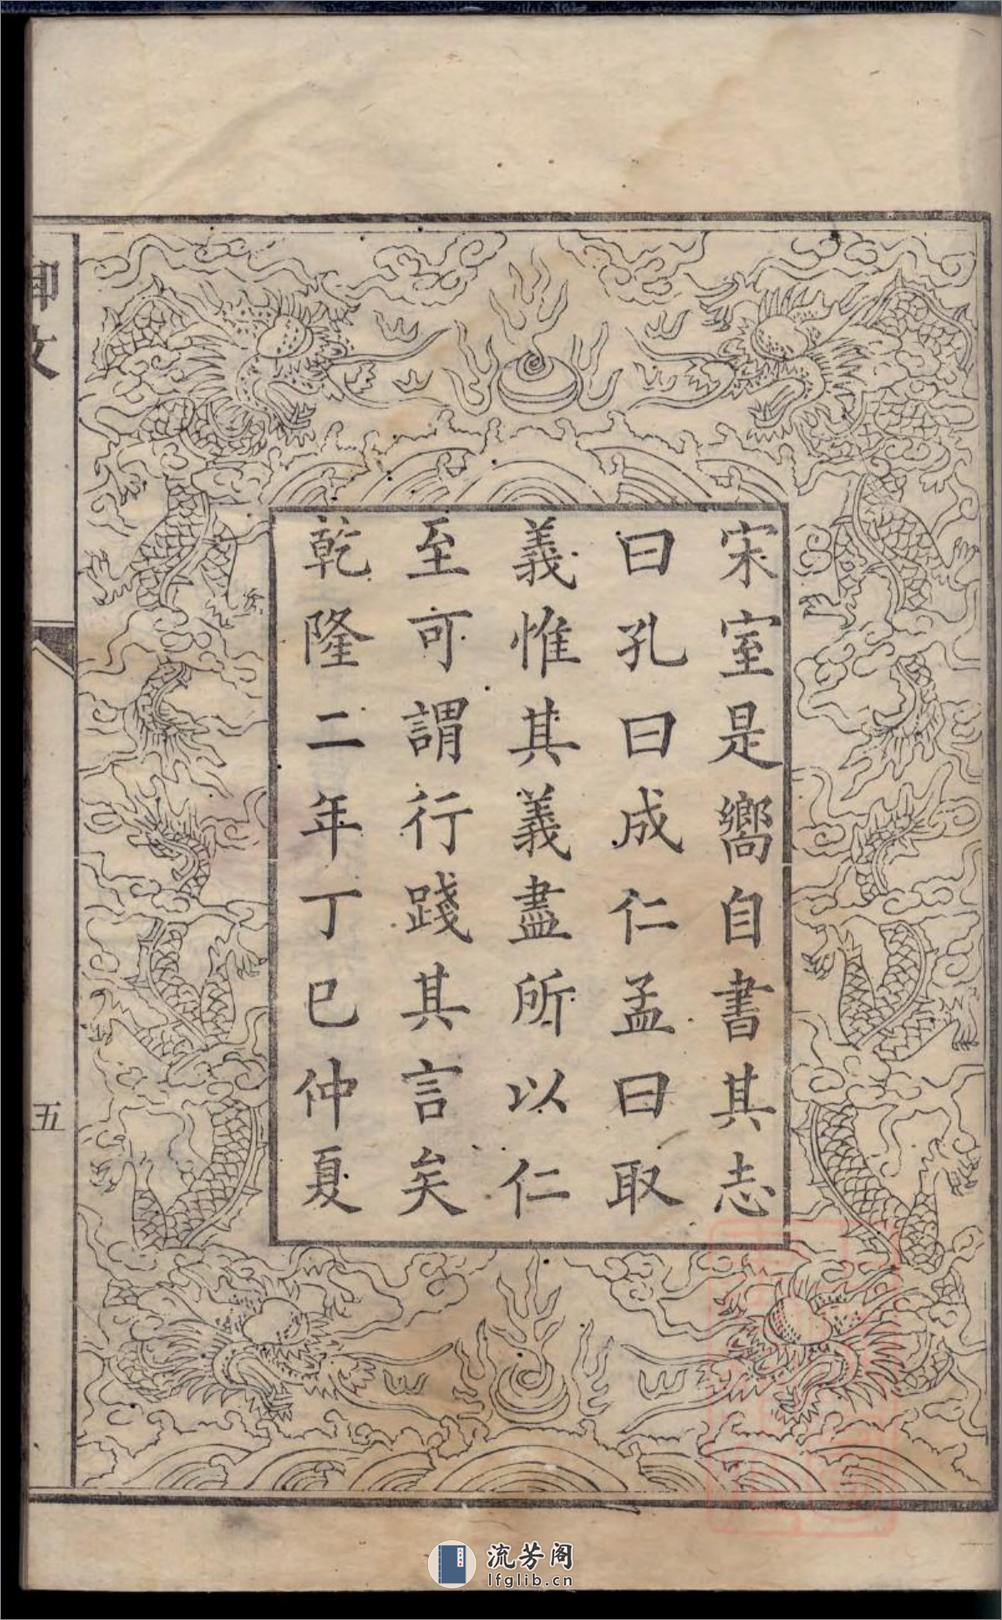 宋室是嚮自書其志
曰孔曰成仁孟曰取
義惟其義盡所以仁
至可謂行踐其言矣
乾隆二年丁巳仲夏
五
流芳阁
lfglib.cn